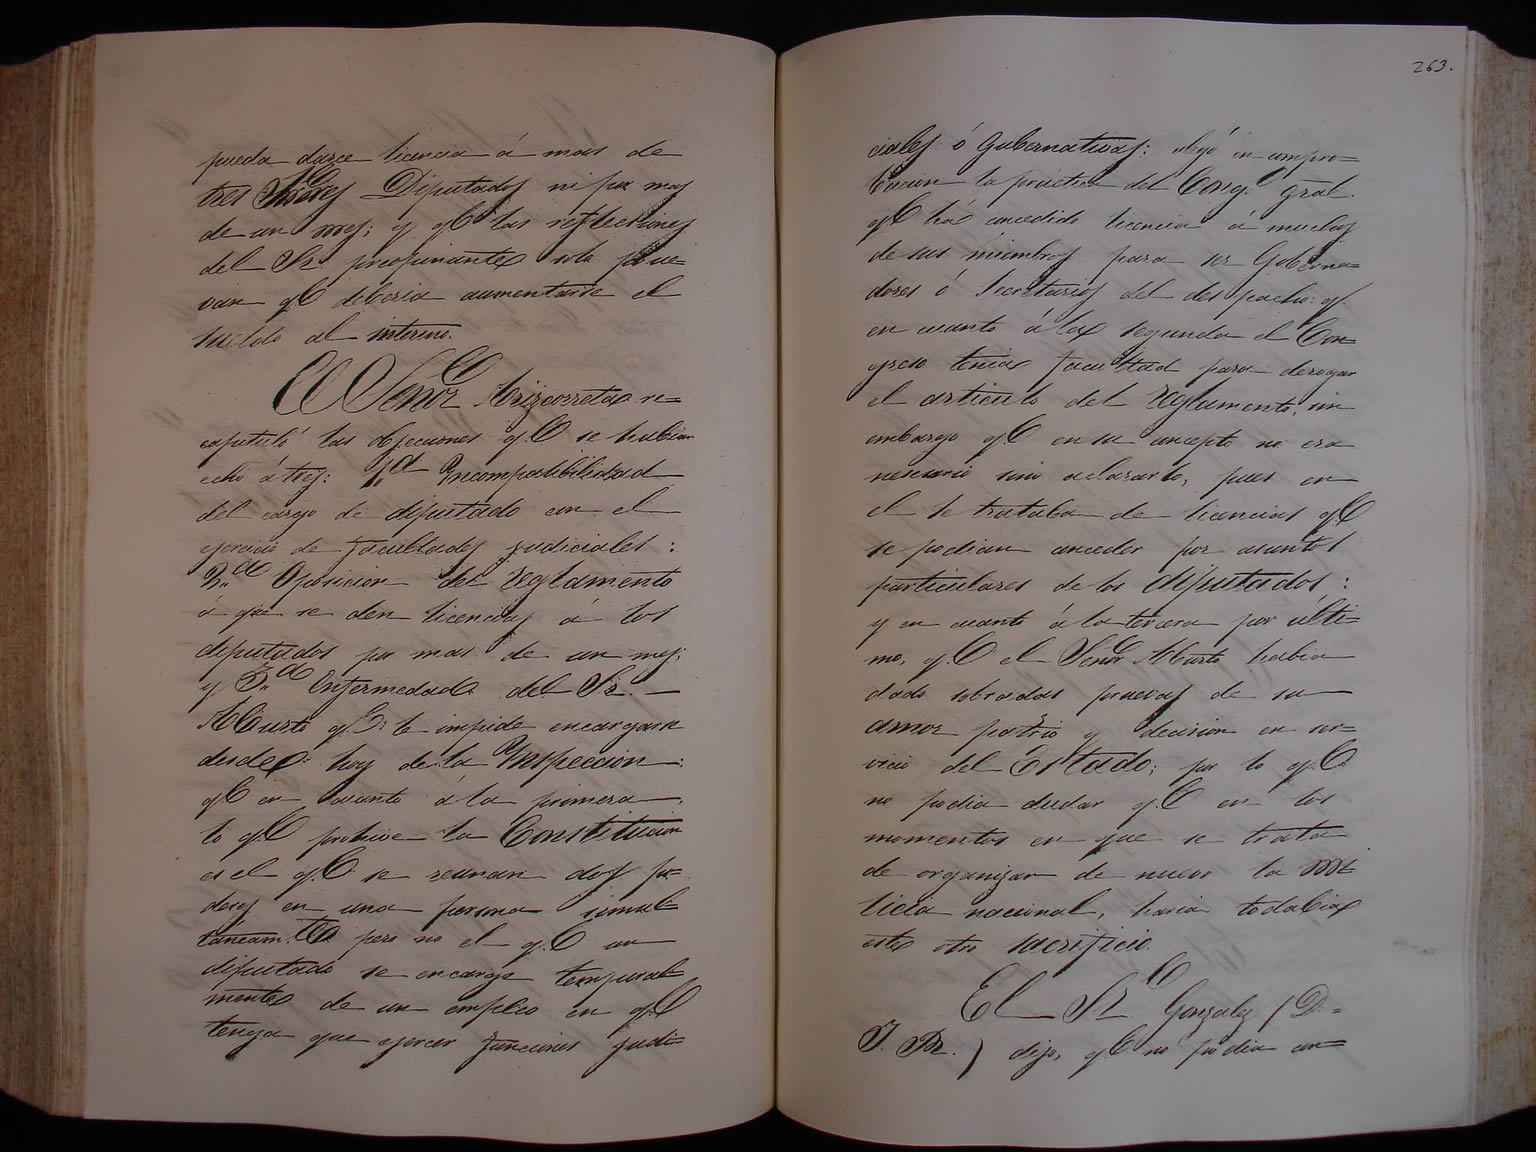 pueda darce licencia á mas de
tres Señores Diputados ni por mas
de un mes; y qe las reflecciones
del Sr. preopinante solo prue=
van qe deberia aumentarse el
sueldo al interino.
El Señor Arizcorreta re=
capituló las objecciones qe se habian
echo á tres: 1.a Yncompatibilidad
del cargo de diputado con el
ejercicio de facultades judiciales:
2.a Oposicion del reglamento
á que se den licencias á los
diputados por mas de un mes;
y 3.a Enfermedad del Sr.
Muerto qe le impide encargarse
desde hoy de la Ynspeccion:
qe en cuanto á la primera,
lo qe prohive la Constitucion
es el qe se reunan dos po=
deres en una persona simul=
taneam.te pero no el qe un
diputado se encarge temporal=
mente de un empleo en qe
tenga que ejercer funciones judi=
263.
ciales ó Gubernativas: alegó en compro=
bacion la práctica del Cong.o gral.
qe há concedido licencia á muchos
de sus miembros para ser Goberna=
dores ó Secretarios del despacho: qe
en cuanto á la segunda el Con=
greso tenia facultad para derogar
el articulo del reglamento, sin
embargo qe en su concepto no era
nesesario sino aclararlo, pues en
el se trataba de licencias qe
se podian conceder por asuntos
particulares de los diputados:
y en cuanto á la tercera por ulti=
mo, qe el Señor Muerto habia
dado sobradas pruevas de su
amor patrio y decision en ser=
vicio del Estado; por lo qe
no podia dudar qe en los
momentos en que se trata
de organizar de nuevo la Mi=
licia nacional, haria todabia
este otro sacrificio.
El Sr. Gonzalez (D.=
J. Pr.) dijo, qe no podia con=